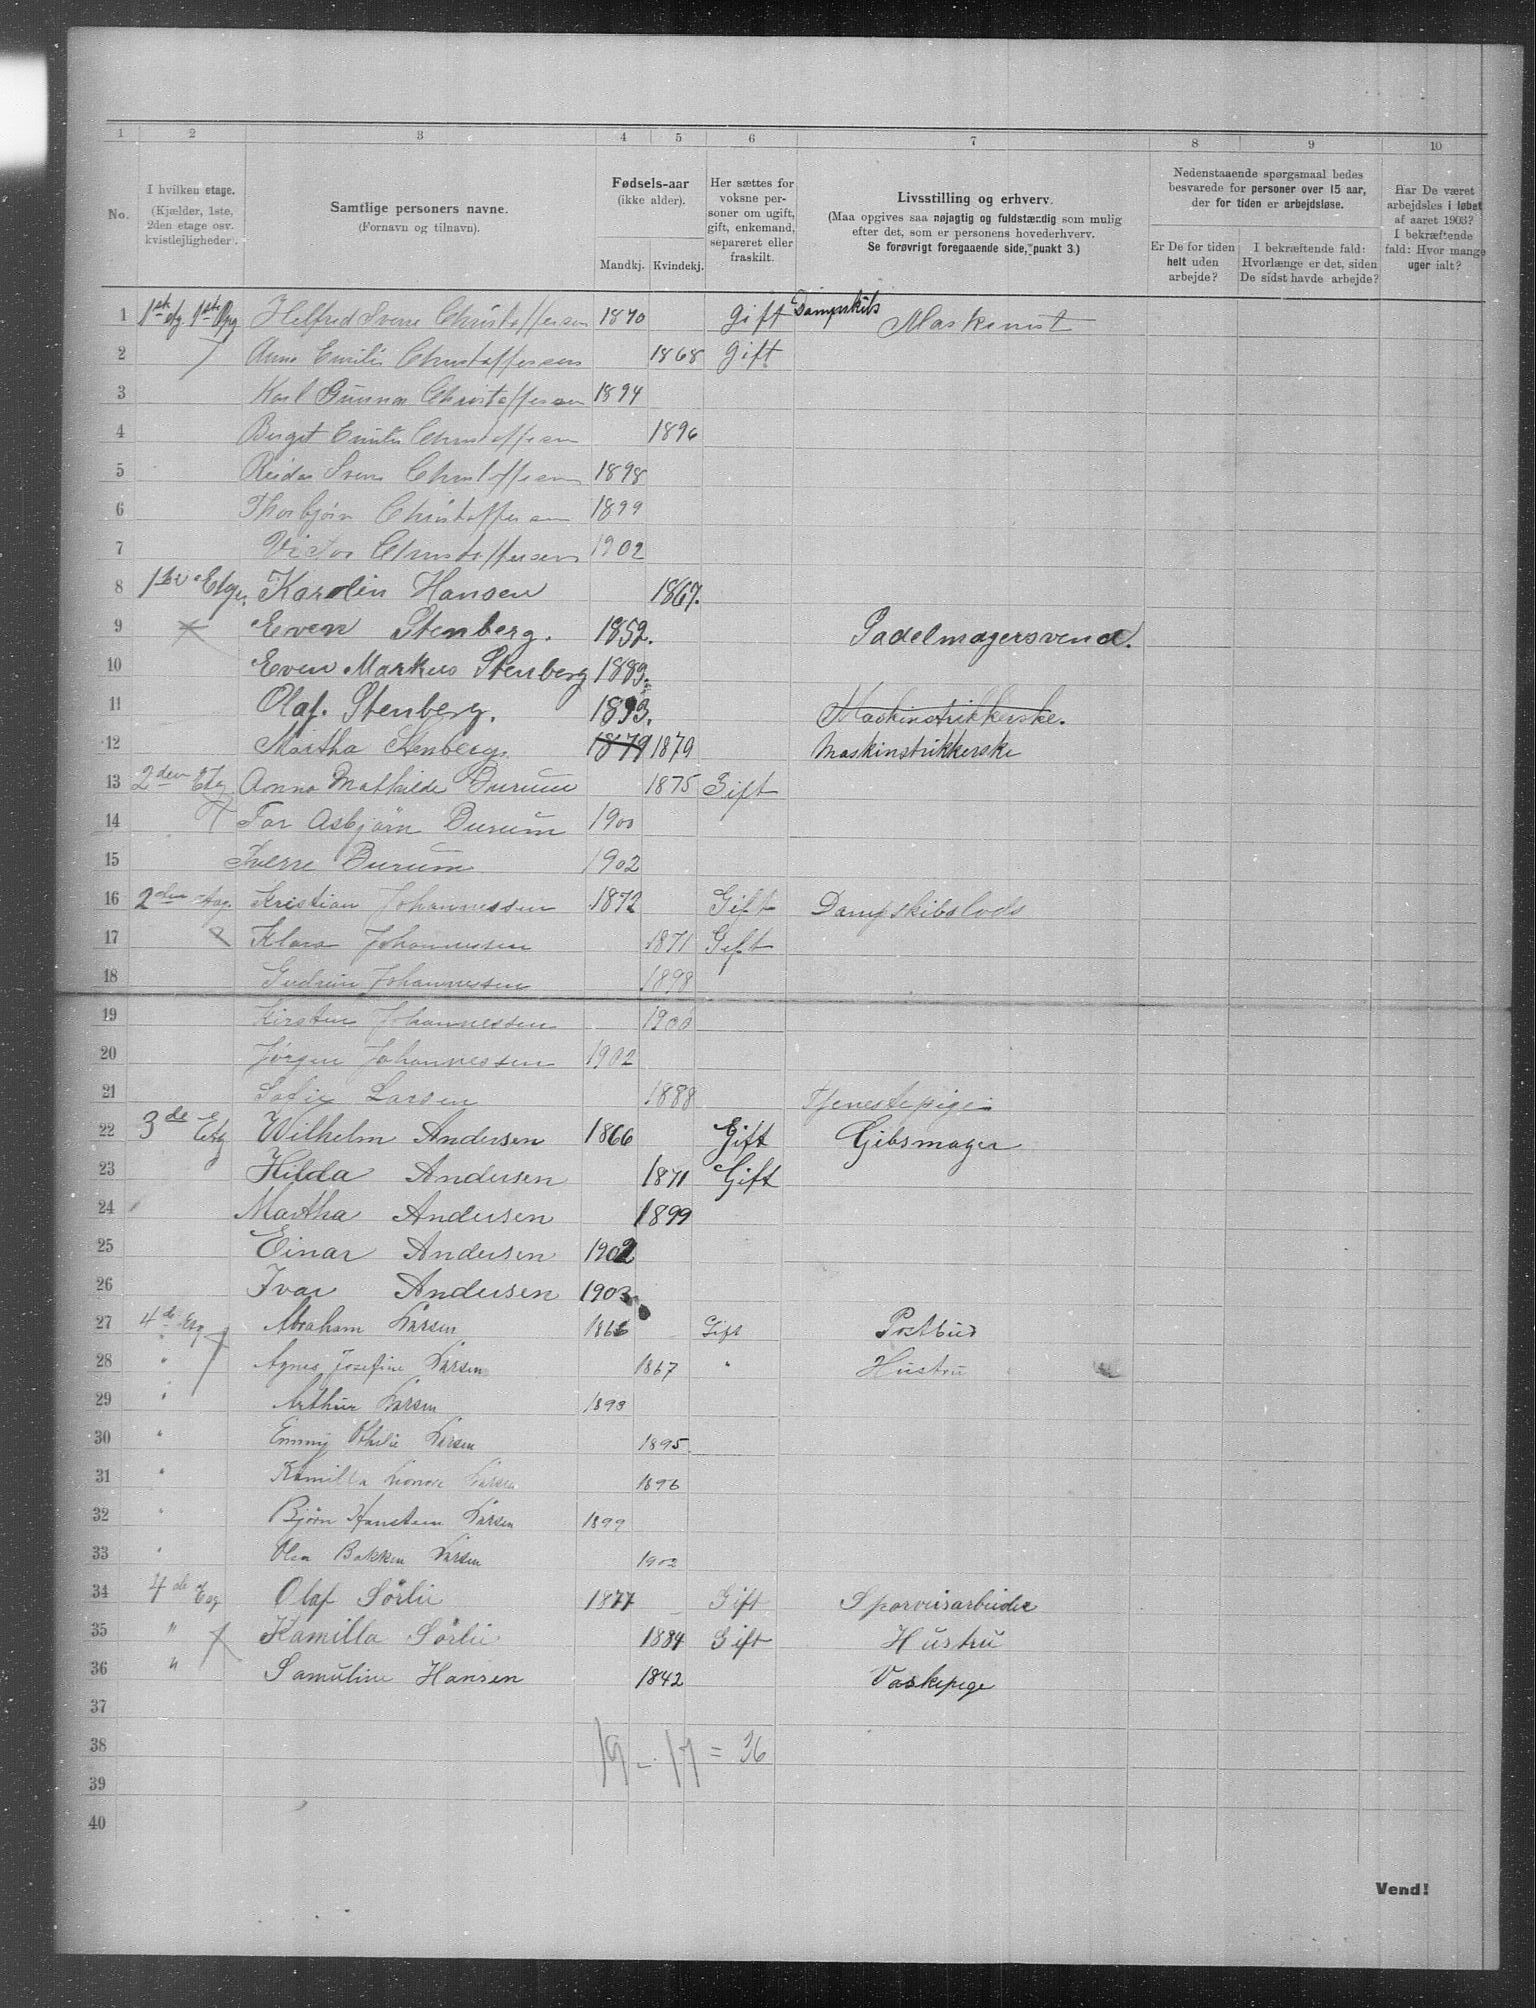 1 2 3 4 5 6 7 8 9 10
No.
I hvilken etage.
(Kjælder, 1ste,
2den etage osv.
kvistlejligheder.
Samtlige personers navne.
(Fornavn og tilnavn).
Fødsels-aar
(ikke alder).
Mandkj. Kvindekj.
Her sættes for
voksne per-
soner om ugift,
gift, enkemand,
separeret eller
fraskilt.
Livsstilling og erhverv.
(Maa opgives saa nøjagtig og fuldstændig som mulig
efter det, som er personens hovederhverv.
Se forøvrigt foregaaende side, punkt 3.)
Nedenstaaende spørgsmaal bedes
besvarede for personer over 15 aar,
der for tiden er arbejdsløse.
Er De for tiden
helt uden
arbejde?
I bekræftende fald:
Hvorlænge er det, siden
De sidst havde arbejde?
Har De været
arbejdsløs i løbet
af aaret 1903?
I bekræftende
fald: Hvor mange
uger ialt?
1 1ste etg 1ste Opg Helfred Sverre Christoffersen 1870 Gift Dampskibs Maskinist
2 Anna Emilie Christoffersen 1868 Gift
3 Karl Gunnar Christoffersen 1894
4 Birgit Emilie Christoffersen 1896
5 Reidar Sverre Christoffersen 1898
6 Thorbjørn Christoffersen 1899
7 Victor Christoffersen 1902
8 1ste Etge. Karolin Hansen 1867.
9 Even Stenberg. 1852. Sadelmagersvend.
10 Even Markus Stenberg 1883.
11 Olaf. Stenberg. 1893. Maskinstrikkerske.
12 Martha Stenberg. 1879 1879 Maskinstrikkerske
13 2den Etg Anna Mathilde Burum 1875 Gift
14 Tor Asbjørn Burum 1900
15 Sverre Burum 1902
16 2den etag. Kristian Johannessen 1872 Gift Dampskibslods
17 Klara Johannessen 1871 Gift
18 Gudrun Johannessen 1898
19 Kirsten Johannessen 1900
20 Jørgen Johannessen 1902
21 Sofie Larsen 1888 Tjenestepige
22 3de Etg Wilhelm Andersen 1866 Gift Gibsmager
23 Hilda Andersen 1871 Gift
24 Martha Andersen 1899
25 Einar Andersen 1902
26 Ivar Andersen 1903
27 4de Etg Abraham Larsen 1866 Gift Postbud
28 " Agnes Josefine Larsen 1867 " Hustru
29 " Arthur Larsen 1893
30 " Emmy Othilie Larsen 1895
31 " Kamilla Larsen 1896
32 " Bjørn Hanstein Larsen 1899
33 " Olea Bakken Larsen 1902
34 4de Etg Olaf Sörlie 1877 Gift Sporveisarbeider
35 " Kamilla Sörlie 1884 Gift Hustru
36 " Samuline Hansen 1842 Vaskepige
37
38 19 - 17 = 36
39
40
Vend!